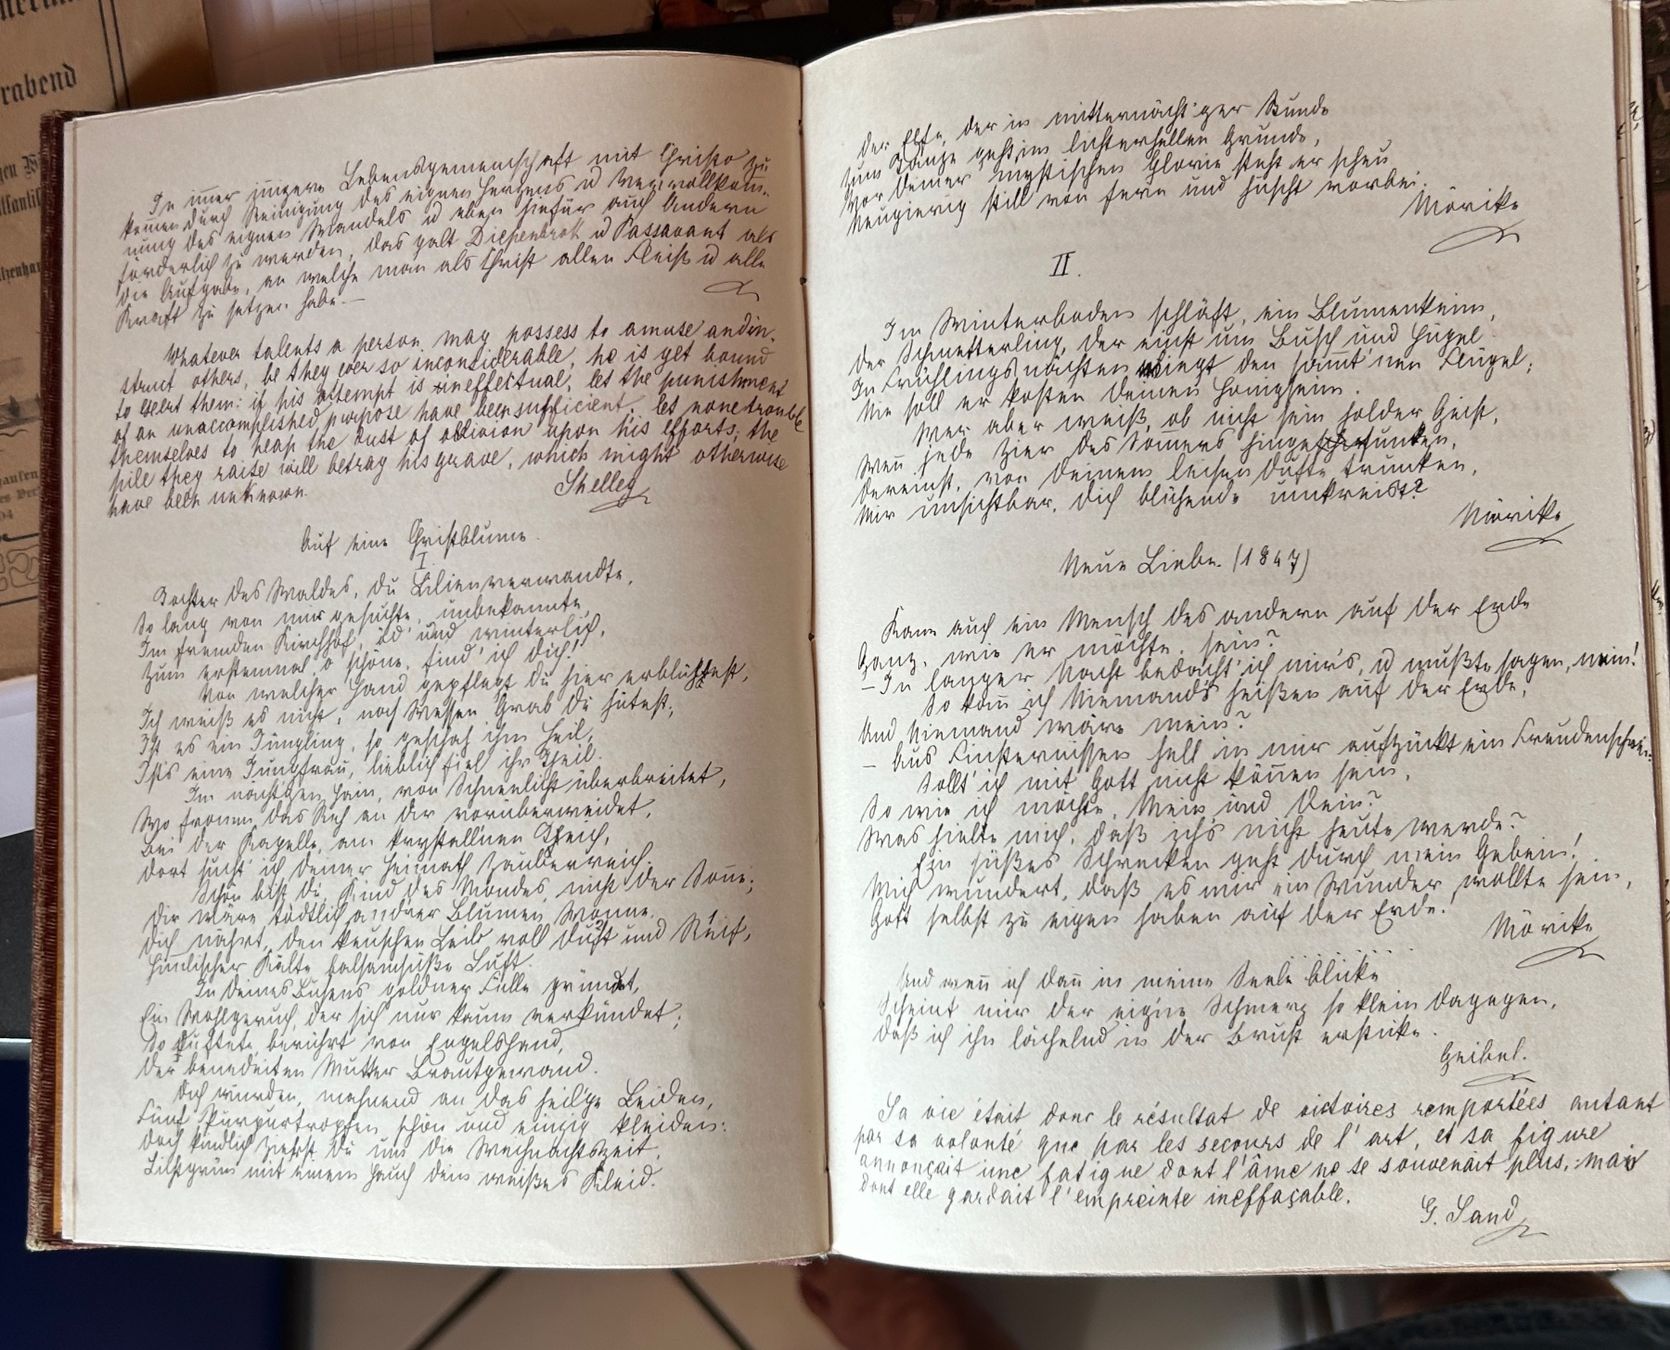 rabend
In iṅer iṅigere Lebensgemeinschaft mit Christo zu
kommen durch Reinigung des eignen Herzens u Vervollkom̅-
nung des eignen Wandels u eben hiefür auch Andern
förderlich zu werden, das galt Diepenbrok u Passavant als
die Aufgabe, an welche man als Christ allen Fleiß u alle
Kraft zu setzen habe. —
Whatever talents a person may possess to amuse and in-
struct others, be they ever so inconsiderable, he is yet bound
to exert them: if his attempt is ineffectual, let the punishment
of an unaccomplished purpose have been sufficient, let none trouble
themselves to heap the dust of oblivion upon his efforts; the
pile they raise will betray his grave, which might otherwise
have been unknown.
Shelley
Auf eine Christblume.
I
Tochter des Waldes, du Lilienverwandte,
So lang von mir gesuchte, unbekannte,
Im fremden Kirchhof, öd' und winterlich,
Zum erstenmal o schöne, find' ich dich!
Von welcher Hand gepflegt du hier erblühtest,
Ich weiß es nicht, noch wessen Grab du hütest;
Ist es ein Jüngling, so geschah ihm Heil,
Ist's eine Jungfrau, lieblich fiel ihr Theil.
Im nächtgen Hain, von Schneelicht überbreitet,
Wo fromm das Reh an dir vorüberweidet,
Bei der Kapelle, am krystallnen Teich,
Dort sucht' ich deiner Heimath Zauberreich.
Schön bist du, Kind des Mondes, nicht der Soṅe;
Dir wäre tödtlich andrer Blumen Woṅe,
Dich nährt, den keuschen Leib voll Duft und Reif,
Him̅lischer Kälte balsamsüße Luft.
In deines Busens goldner Fülle gründet,
Ein Wohlgeruch, der sich nur kaum verkündet;
So duftete, berührt von Engelshand,
Der benedeiten Mutter Brautgewand.
Dich würden, mahnend an das heil'ge Leiden,
Fünf Purpurtropfen schön und einzig kleiden:
Doch kindlich zierst du um die Weihnachtszeit,
Lichtgrün mit einem Hauch dein weißes Kleid.
Der Elfe, der in mitternächt'ger Stunde
Zum Tanze geht im lichterhellen Grunde,
Vor deiner mystischen Glorie steht er scheu
Neugierig still von fern und huscht vorbei.
Mörike
II.
Im Winterboden schläft, ein Blumenkeim,
Der Schmetterling, der einst um Busch und Hügel
In Frühlingsnächten wiegt den sam̅t'nen Flügel;
Nie soll er kosten deinen Honigseim.
Wer aber weiß, ob nicht sein holder Geist,
Weṅ jede Zier des Som̅ers hingesunken,
Dereinst, von deinem leisen Dufte trunken,
Mir unsichtbar, dich blühende umkreist?
Mörike
Neue Liebe. (1847)
Kann auch ein Mensch des andern auf der Erde
Ganz, wie er möchte, sein?
— In langer Nacht bedacht' ich mir's, u mußte sagen, nein!
So kaṅ ich Niemands heißen auf der Erde,
Und Niemand wäre mein?
— Aus Finsternissen hell in mir aufzückt ein Freudenschein:
Sollt' ich mit Gott nicht köṅen sein,
So wie ich möchte, Mein und Dein?
Was hielte mich, daß ich's nicht heute werde?
Ein süßes Schrecken geht durch mein Gebein!
Mich wundert, daß es mir ein Wunder wollte sein,
Gott selbst zu eigen haben auf der Erde!
Mörike
Und weṅ ich daṅ in meine Seele blicke
Scheint mir der eigne Schmerz so klein dagegen,
Daß ich ihn lächelnd in der Brust ersticke.
Geibel.
Sa vie était donc le résultat de victoires remportées autant
par sa volonté que par les secours de l'art, et sa figure
annonçait une fatigue dont l'âme ne se souvenait plus, mais
dont elle gardait l'empreinte ineffaçable.
G. Sand